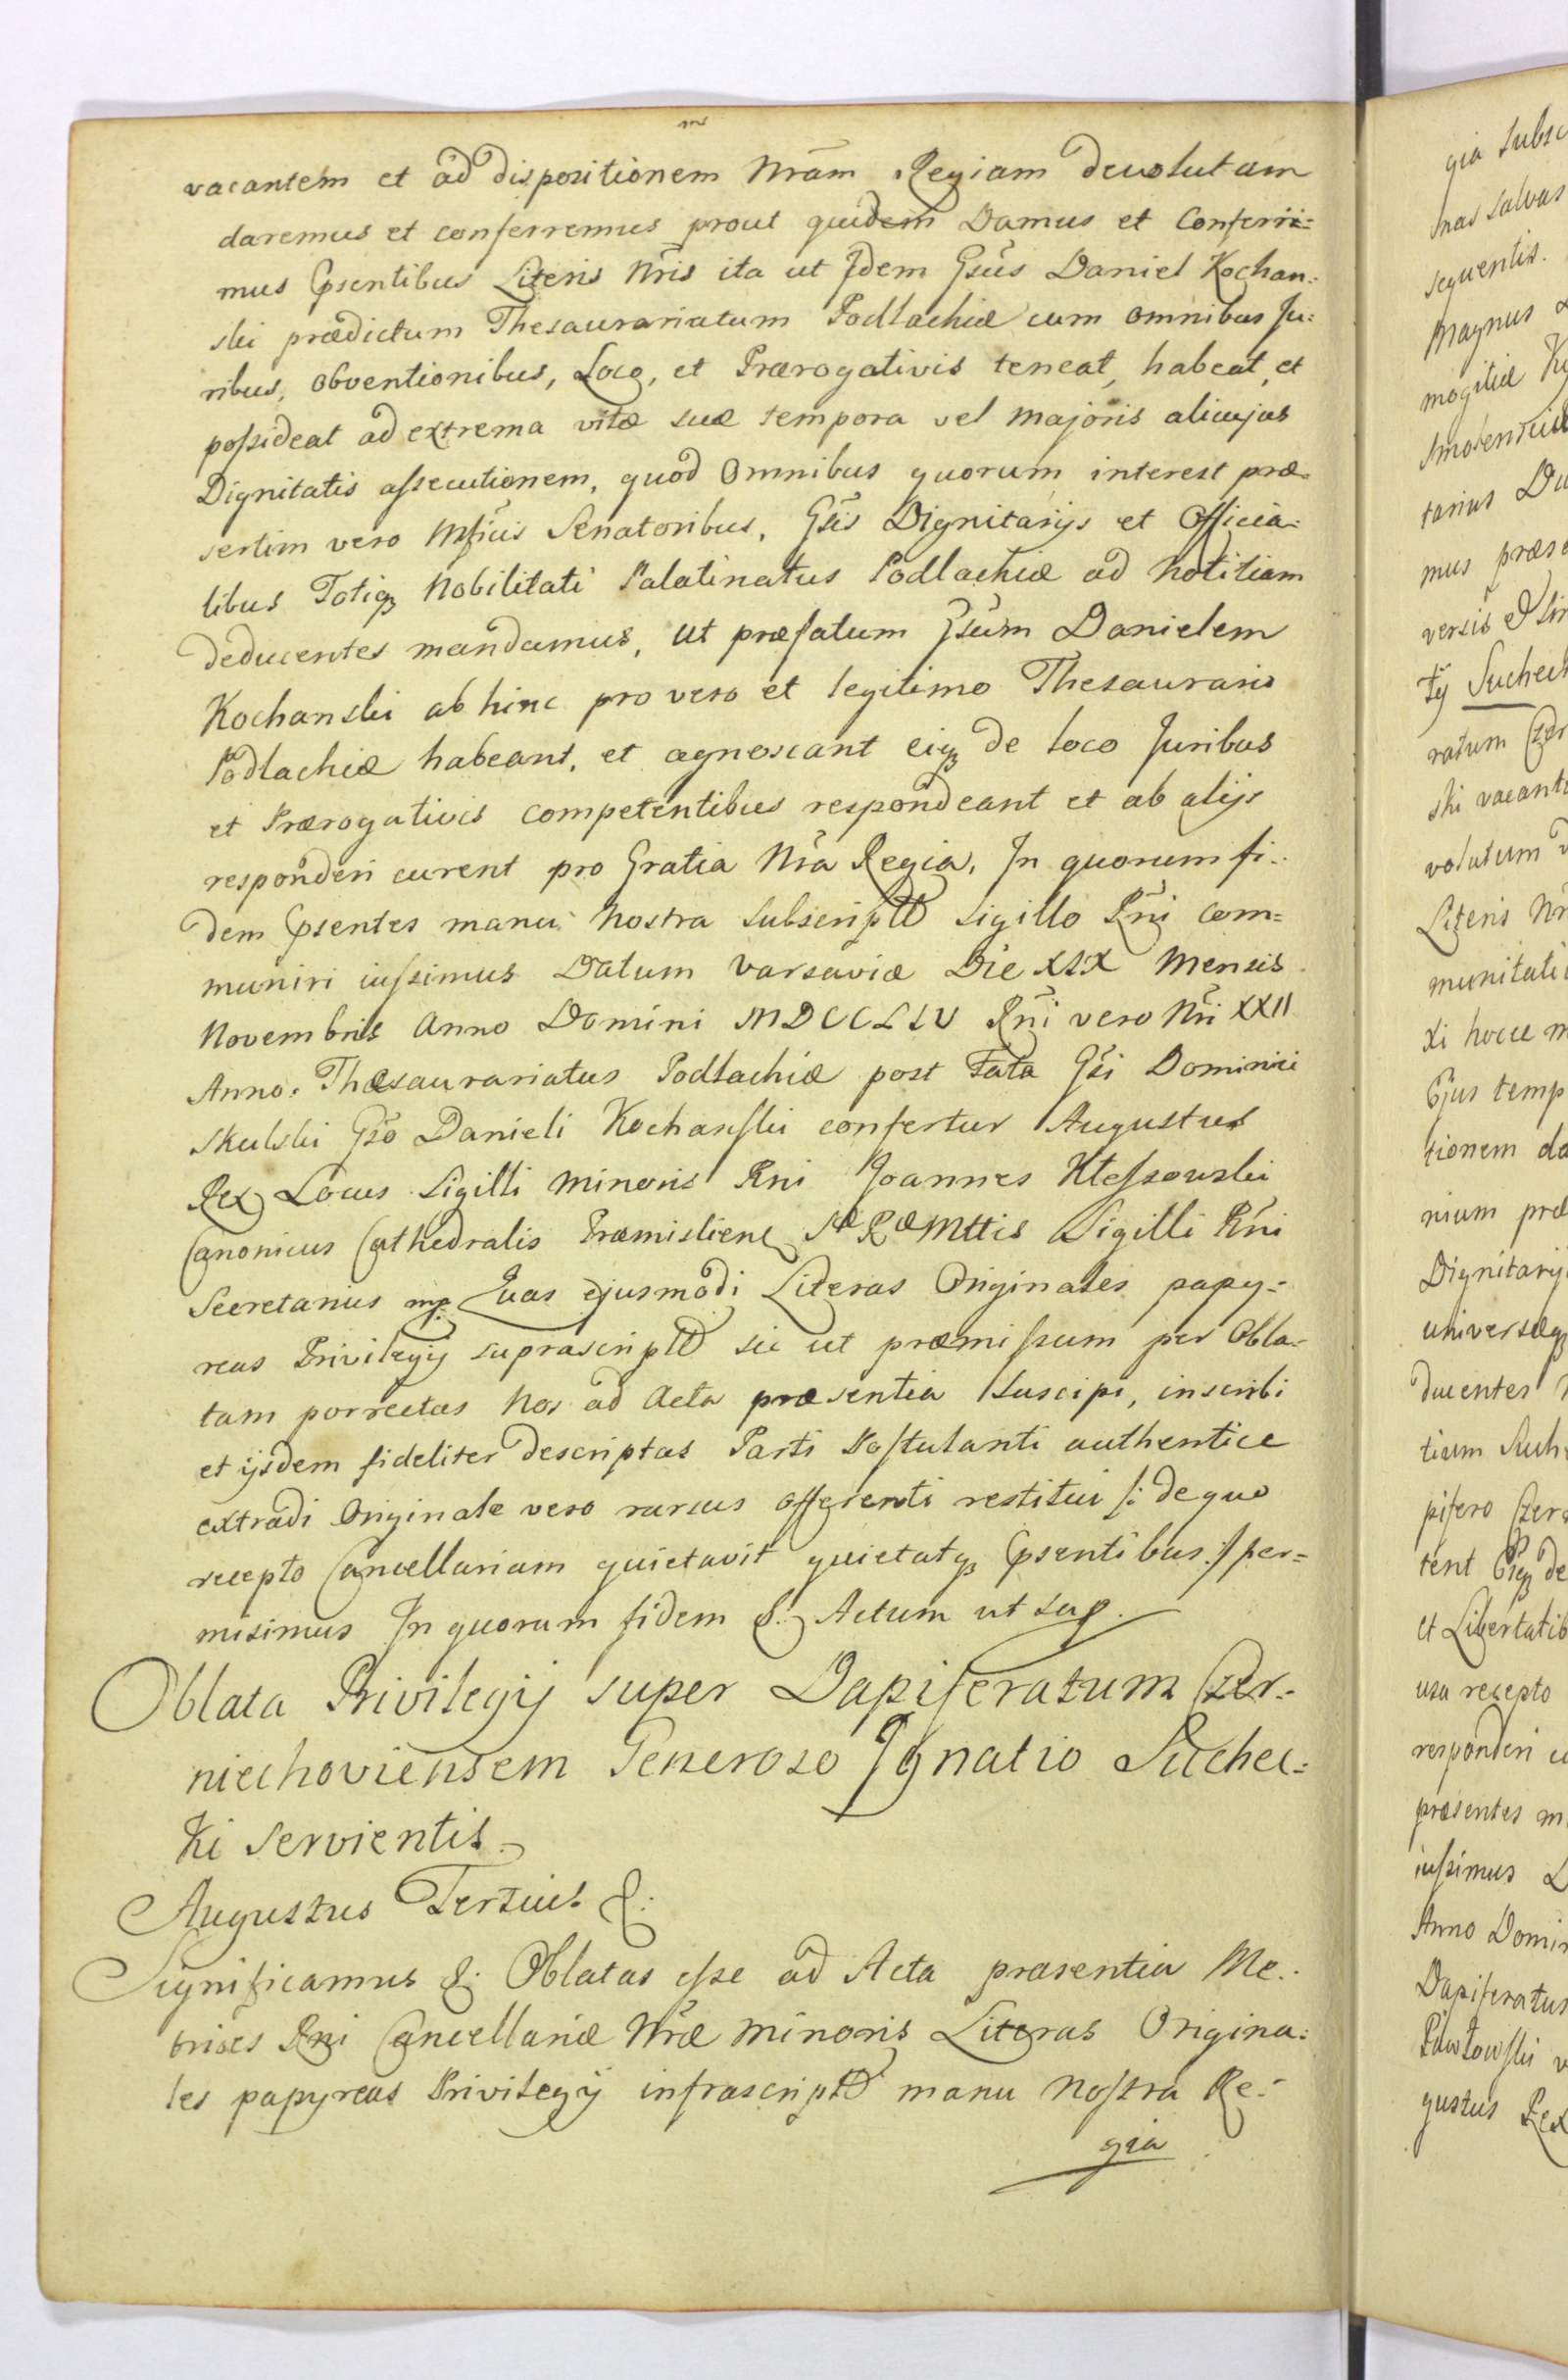 vacantem et ad dispositionem Nrãm Regiam devolutam
daremus et conferremus prout quidem Damus et Conferi=
mus Psentibus Literis Nr̃is ita ut Idem Gs̃us Daniel Kochan:
ski prædictum Thesaurariatum Podlachiæ cum omnibus Ju:
ribus, obventionibus, Loco, et Prærogativis teneat, habeat, et
poſsideat ad extrema vitæ suæ tempora vel majoris alicujus
Dignitatis aſsecutionem, quod Omnibus quorum interest præ
sertim vero Mf̃icis Senatoribus, Gs̃is Dignitarijs et Officia:
libus Totiq₃ Nobilitati Palatinatus Podlachiæ ad Notitiam
deducentes mandamus, ut præfatum Gs̃um Danielem
Kochanski ab hinc pro vero et legitimo Thesaurario
Podlachiæ habeant, et agnoscant eiq₃ de loco Juribus
et Prærogativis competentibus respondeant et ab alijs
responderi curent pro Gratia Nr̃a Regia, In quorum fi:
dem Psentes manu Nostra Subscriptt Sigillo Rñi com=
muniri iuſsimus Datum Varsaviæ Die XIX Mensis
Novembris Anno Domini MDCCLIV Rñi vero Nr̃i XXII
Anno. Thæsaurariatus Podlachiæ post Fata Gs̃i Dominici
Skulski Gs̃o Danieli Kochanſki confertur Augustus
Rex Locus Sigilli Minoris Rni Joannes Kleſzowski
Canonicus Cathedralis Præmislien S æ R æ Mttis Sigilli Rñi
Secretarius mp. Quas ejusmodi Literas Originales papy=
reas Privilegij suprascriptt sic ut præmiſsum per Obla:
tam porrectas Nos ad Acta præsentia Suscipi, inscribi
et ijsdem fideliter descriptas Parti Poſtulanti authentice
extradi Originale vero rursus offerenti restitui /: de quo
recepto Cancellariam quietavit quietatq₃ Psentibus :/ per=
misimus In quorum fidem &. Actum ut sup.
Oblata Privilegij super Dapiferatum Czer=
niechoviensem Generoso Ignatio Suchec=
ki servientis.
Augustus Tertius &.
Significamus &. Oblatas eſse ad Acta præsentia Me:
trices Rni Cancellariæ Nr̃æ Minoris Literas Origina:
les papyreas Privilegij infrascriptt manu Noſtra Re:
gia
gia Subsc
nas salvas
sequentis.
Magnus
mogitiæ Ky
Smolensciæ
tarius Du
mus præse
versis & sin
ty Suchec
ratum Czer
ski vacant
volutum
Literis Nr
munitati
ki hocce m
Ejus temp
tionem da
nium præ
Dignitarij
universæq₃
ducentes
tium Such
pifero Czer
tent Eiq₃ de
et Libertatib
usu recepto
responderi cu
præsentes m
iuſsimus D
Anno Domi
Dapiferatus
Pawłowſki v
gustus Rex